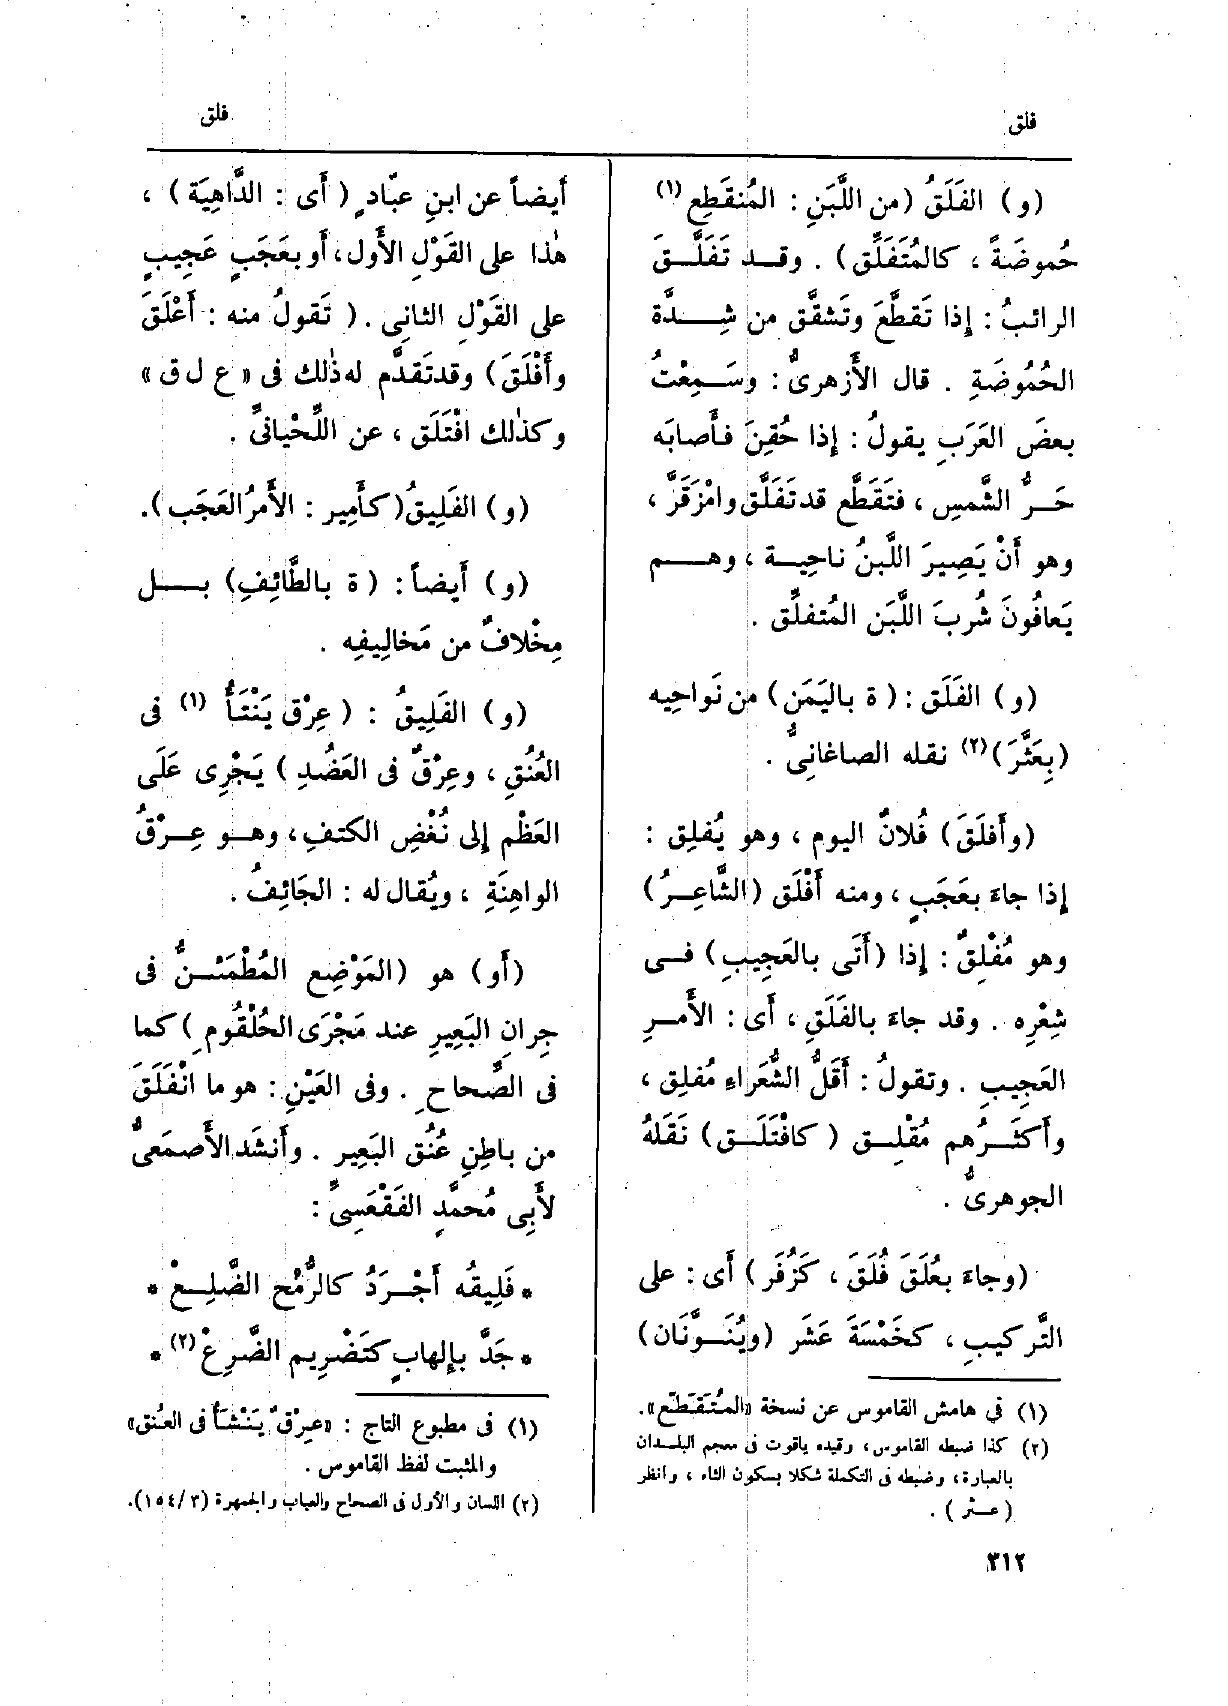 فلق
فلق
(و) الفَلَقُ (من اللَّبَنِ : المُنقَطِع (١)
حُموضَةً ، كالمُتَفَلِّق) . وقـد تَفَلَّـقَ
الرائبُ : إذا تَقطَّعَ وتَشقَّق من شِـدَّة
الحُمُوضَةِ . قال الأَزهرىُّ : وسَـمِعْتُ
بعضَ العَرَبِ يقولُ : إذا حُقِنَ فأَصابَه
حَـرُّ الشَّمسِ ، فتَقَطَّع قد تَفَلَّق وامْزَقَرَّ ،
وهو أَنْ يَصِيرَ اللَّبنُ ناحِيـة ، وهـم
يَعافُونَ شُربَ اللَّبَن المُتفلِّق .
(و) الفَلَق : (ة باليَمَن) من نَواحِيه
(بِعَثَّرَ) (٢) نقله الصاغانِىُّ .
(وأَفلَقَ) فُلانٌ اليوم ، وهو يُفلِق :
إذا جاءَ بعَجَبٍ ، ومنه أَفْلَق (الشَّاعِـرُ)
وهو مُفْلِقٌ : إذا (أَتَى بالعَجِيبِ) فـى
شِعْرِه . وقد جاءَ بالفَلَقِ ، أَى : الأَمـرِ
العَجِيبِ . وتقولُ : أَقَلُّ الشُّعَراءِ مُفلِق ،
وأَكثَـرُهم مُقْلِـق (كافْتَلَـق) نَقَلهُ
الجوهرىُّ .
(وجاءَ بعُلَقَ فُلَقَ ، كَزُفَر) أَى : على
التَّركيبِ ، كخَمْسَةَ عَشَر (ويُنَـوَّنَان)
(١) في هامش القاموس عن نسخة «المُتَقَطِّع».
(٢) كذا ضبطه القاموس ، وقيده ياقوت فى معجم البلـدان
بالعبارة ، وضبطه فى التكملة شكلا بسكون الثاء ، وانظر
(عـثر) .
أَيضاً عن ابنِ عبّادٍ (أَى : الدَّاهِيَة) ،
هٰذا على القَوْلِ الأَول ، أَو بعَجَبٍ عَجِيبٍ
على القَوْلِ الثانِى . (تَقولُ منه : أَعْلَقَ
وأَفْلَقَ) وقد تَقدَّم له ذٰلك فى «ع ل ق»
وكذٰلك افْتَلَق ، عن اللِّحْيانىِّ .
(و) الفَلِيقُ (كأَمِير : الأَمرُ العَجَب).
(و) أَيضاً : (ة بالطَّائِفِ) بـل
مِخْلافٌ من مَخالِيفِه .
(و) الفَلِيقُ : (عِرْق يَنْتَأُ (١) فى
العُنُقِ ، وعِرْقٌ فى العَضُدِ) يَجْرِى عَلَى
العَظْم إلى نُغْضِ الكتفِ ، وهـو عِـرْقُ
الواهِنَةِ ، ويُقال له : الجَائِفُ .
(أَو) هو (المَوْضِع المُطْمَئـنُّ فى
جِرانِ البَعِيرِ عند مَجْرَى الحُلْقُومِ) كما
فى الصِّحاحِ . وفى العَيْنِ : هو ما انْفَلَقَ
من باطِنِ عُنُق البَعير . وأَنشَد الأَصمَعىُّ
لأَبِى مُحمَّدٍ الفَقْعَسِىِّ :
* فَلِيقُه أَجْـرَدُ كالرُّمْح الضَّلِـعْ *
* جَدَّ بإِلهابٍ كتَضْرِيم الضَّرِعْ (٢) *
(١) فى مطبوع التاج : «عِرْقٌ يَنْشَأُ فى العُنق»
والمثبت لفظ القاموس .
(٢) اللسان والأول فى الصحاح والعباب والجمهرة (٣/١٥٤).
٣١٢